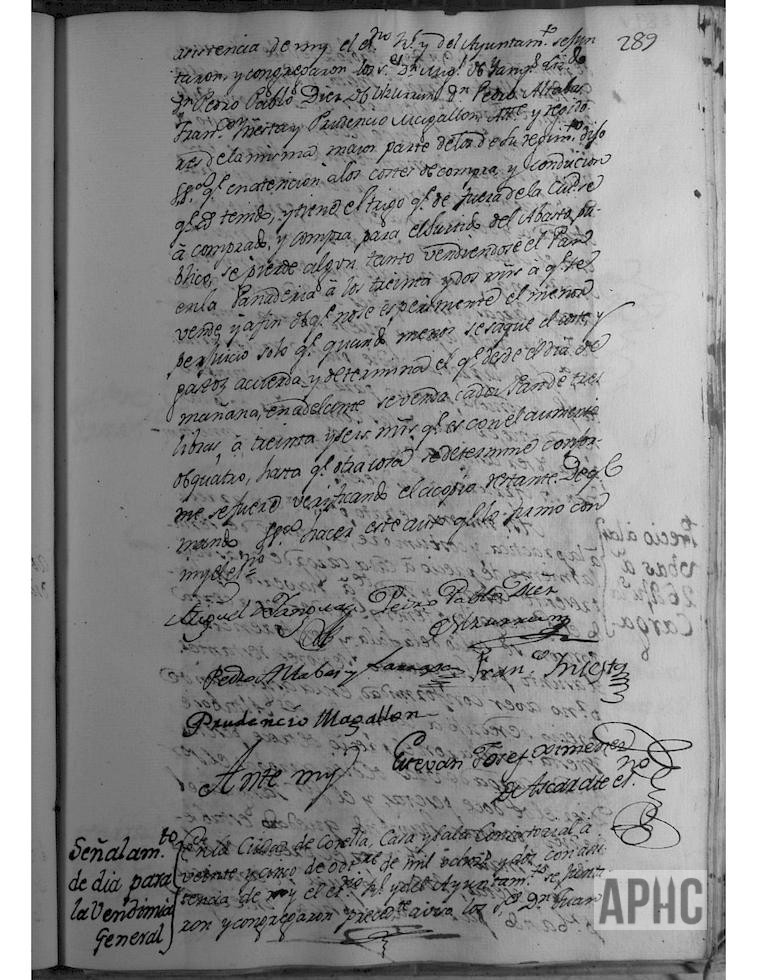 289
asistencia de my el esno R. y del Ayuntamto se jun
taron, y congregaron los Sres Dn Migl de
Dn Pedro Pablo Dier de Ulzurrun, Dn Pedro Altabas
Franco Iñiesta, y Prudencio Magallon, Alte y regido
res de la misma, maior parte de los de su regimto
qe en atencion a los costes de compra, y conducion
qe tenido, y tiene el trigo qe de fuera de la Ciudad
à comprado, y compra para el surtido del Abasto pu-
blico, se pierde algun tanto vendiendose el Pan
en la Panaderia à los treinta y dos mrs à qe se
vende, y a fin de qe no se esperimente el menor
perjuicio solo qe quando menos se saque el coste, y
gastos acuerda, y determina el qe desde el dia de
mañana, en adelante se venda cada Pan de tres
libras, à treinta y seis mrs qe es con el aumento
de quatro, hasta qe otra cosa se determine confor-
me se fuere verificando el acopio restante. De qe
mando hacer este auto qe lo firmo con
my el esno
Miguel de
Pedro Pablo Dier
de Ulzurrun
Pedro Altabas y
Franco Iñiesta
Prudencio Magallon
Ante my
Estevan Josef Ximenez
de Ascarate esno
Señalamto
de dia para
la Vendimia
General
En la Ciudad de Corella, Casa y sala Consistorial à
veinte y cinco de octre de mil y dos, con asis
tencia de my el esno R. y del Ayuntamto se junta
ron y congregaron precedte aviso los Sres Dn Juan
APHC